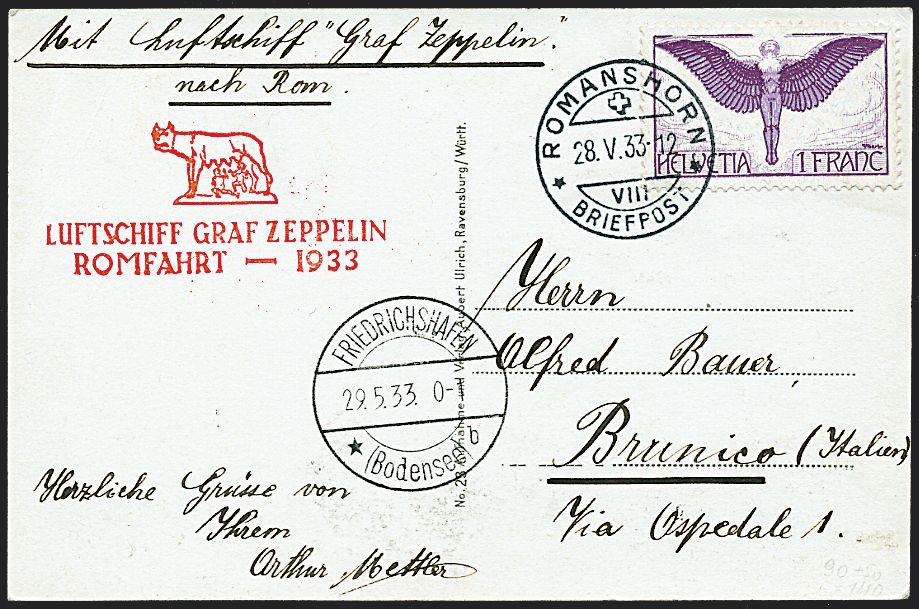 Mit Luftschiff "Graf Zeppelin"
nach Rom.
LUFTSCHIFF GRAF ZEPPELIN
ROMFAHRT — 1933
ROMANSHORN
28.V.33-12
VIII
BRIEFPOST
HELVETIA 1 FRANC
FRIEDRICHSHAFEN
29.5.33. 0-1
b
(Bodensee)
Ulrich, Ravensburg/Württ.
Herrn
Alfred Bauer,
Brunico (Italien)
Via Ospedale 1.
Herzliche Grüsse von
Ihrem
Arthur Mettler
90 + 50